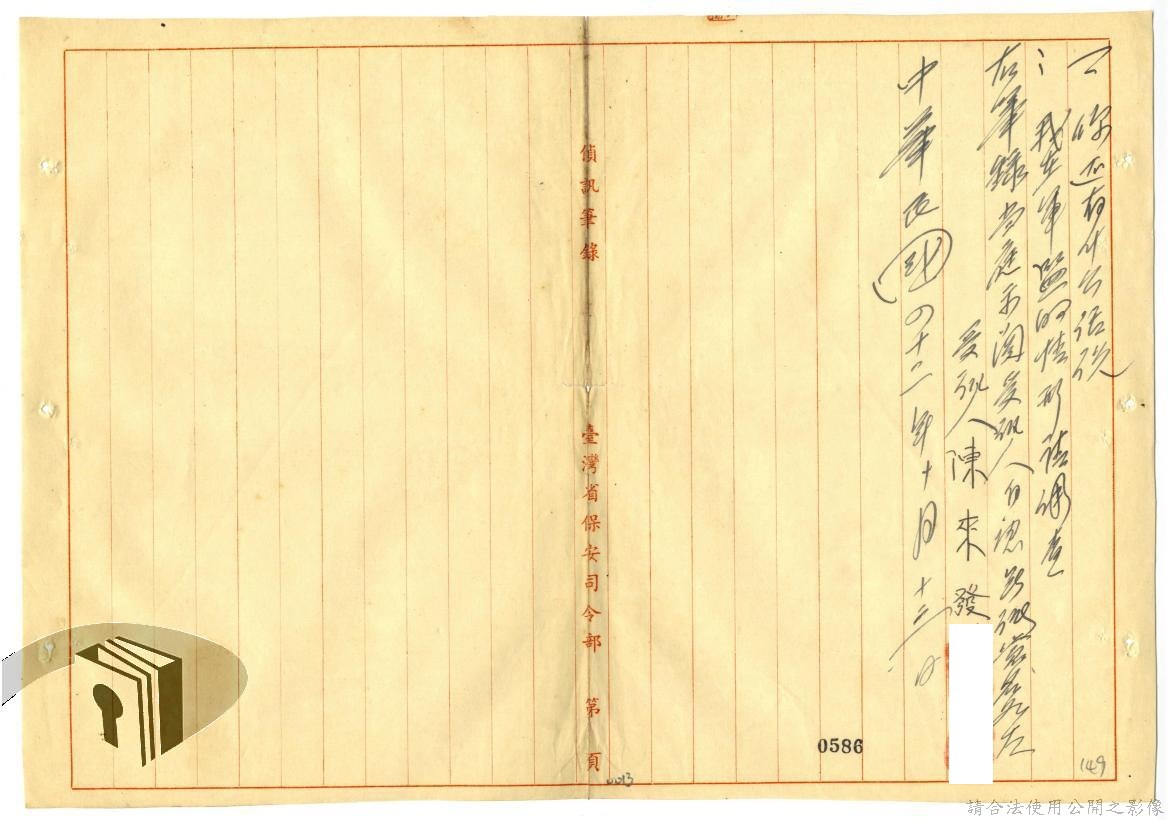 你還有什么話說
我在軍監的情形請調查
右筆錄當庭示閱受訊人自認無訛簽名于左
受訊人陳來發
中華民國四十二年十月十三日
偵訊筆錄 臺灣省保安司令部 第 頁
0586
149
請合法使用公開之影像